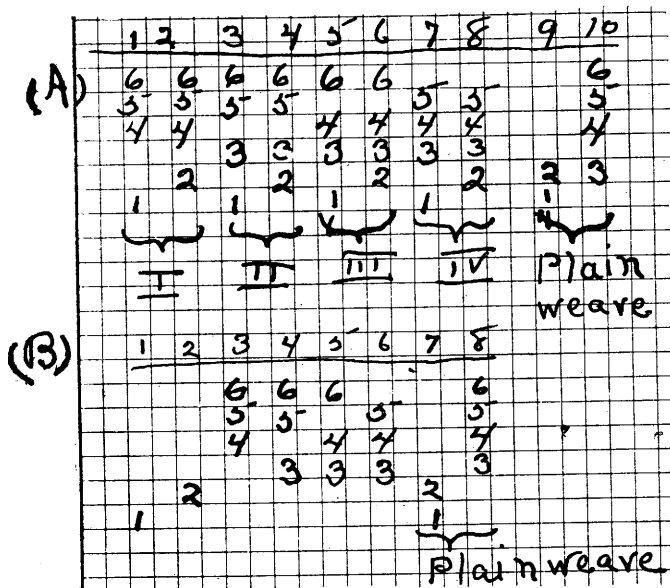 1 2 3 4 5 6 7 8 9 10
(A)
6 6 6 6 6 6 6
5 5 5 5 5 5 5
4 4 4 4 4 4 4
3 3 3 3 3 3
2 2 2 2 2 3
1 1 1 1 1
I II III IV Plain
weave
(B)
1 2 3 4 5 6 7 8
6 6 6 6
5 5 5 5
4 4 4 4
3 3 3 3
2 2
1 1
Plain weave